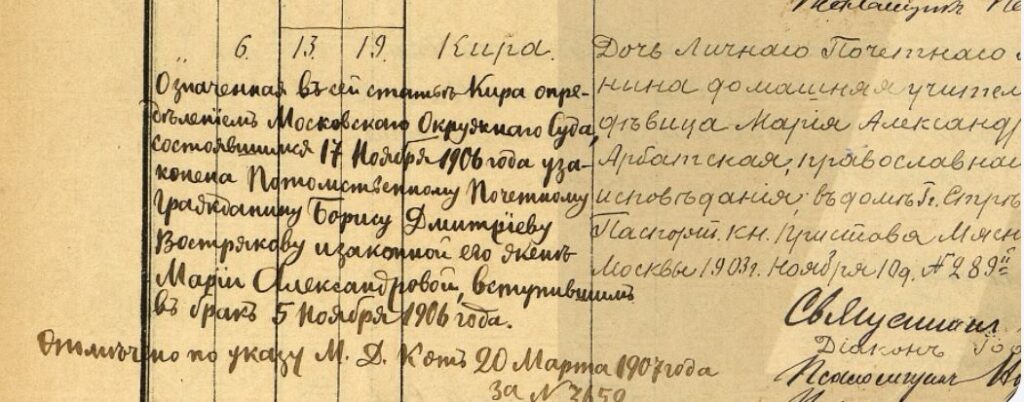 6. 13. 19. Кира.
Означенная въ сей статьѣ Кира опре-
дѣленіемъ Московскаго Окружнаго Суда,
состоявшимся 17 Ноября 1906 года уза-
конена Потомственному Почетному
Гражданину Борису Дмитріеву
Вострякову и законной его женѣ
Маріи Александровой, вступившимъ
въ бракъ 5 Ноября 1906 года.
Отмѣчено по указу М. Д. К. отъ 20 Марта 1907 года
за № 3659
Дочь Личнаго Почетнаго
нина домашняя учител
дѣвица Марія Александр
Арбатская, православнаго
исповѣданія; въ домѣ Гг. Стрѣ
Паспорт. кн. Пристава Мясн
Москвы 1903 г. Ноября 10 д. № 289
Діаконъ
Псаломщикъ